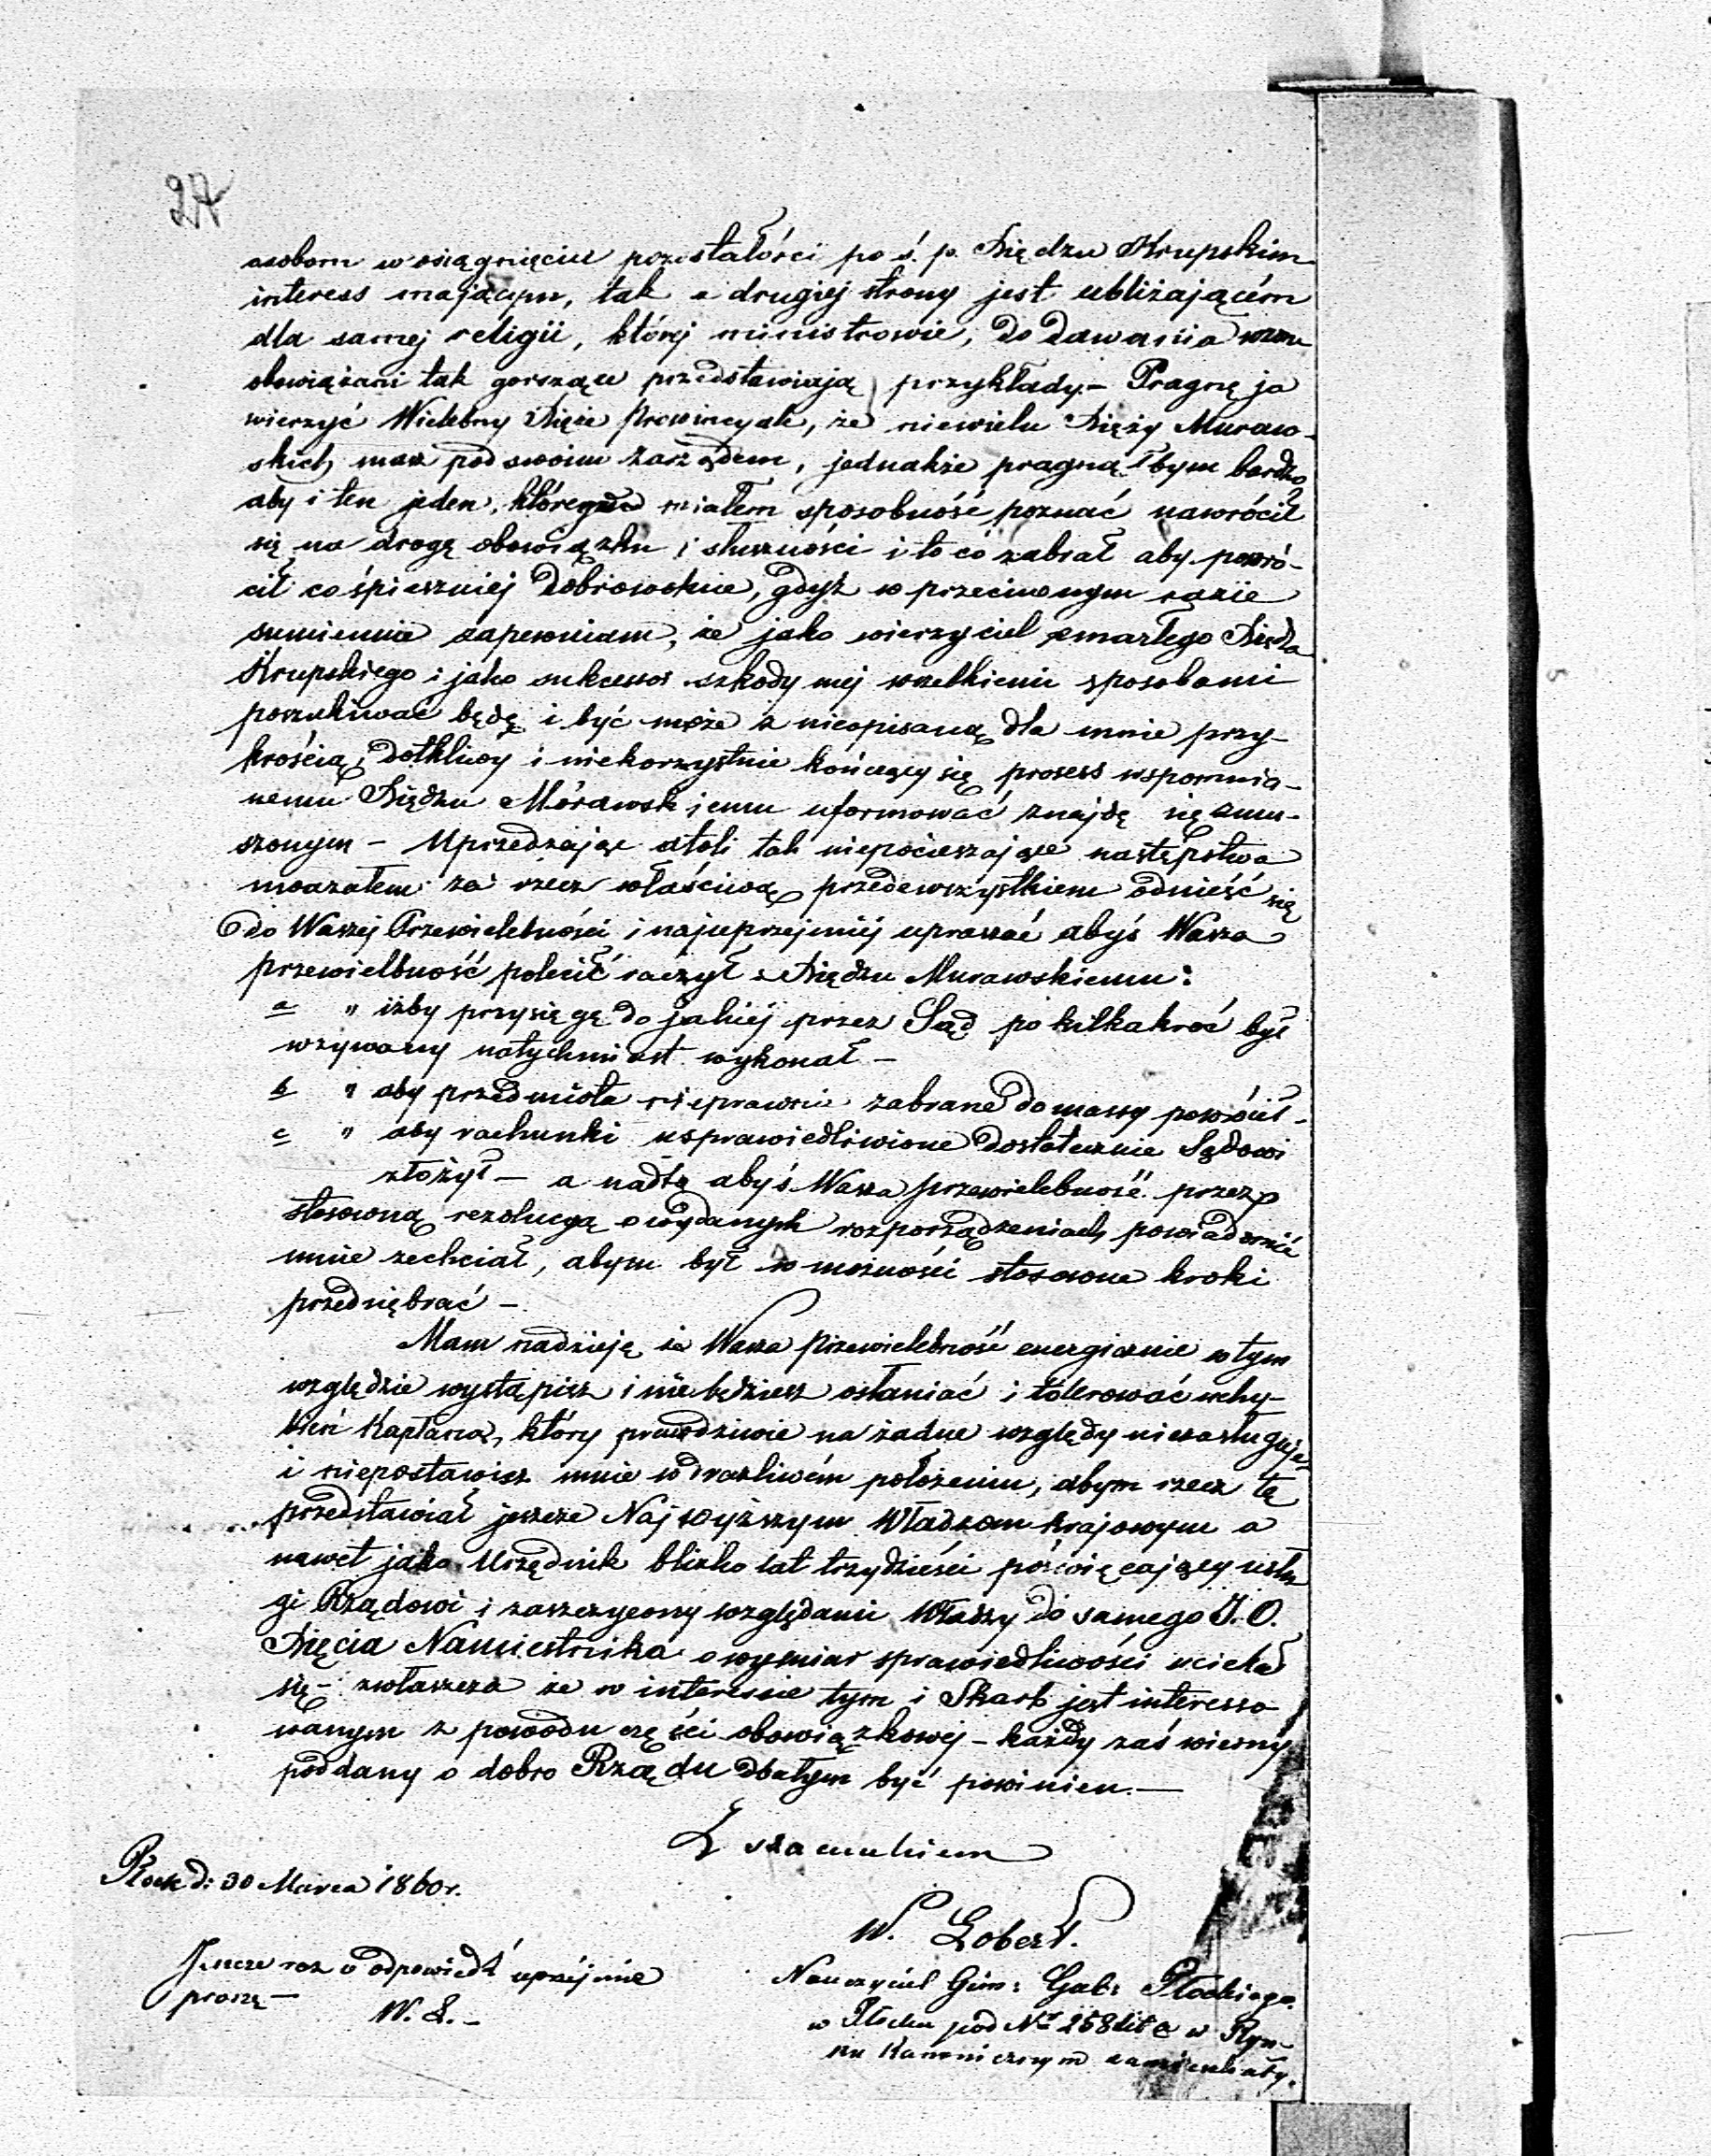 27
osobom w osiągnięciu pozostałości po ś. p. Księdzu Krupskim
interess mającym, tak z drugiej strony jest ubliżającém
dla samej religii, której ministrowie, do dawania wzoru
obowiązani tak gorszące przedstawiają przykłady. – Pragnę ja
wierzyć Wielebny Księże Prowincyale, że niewielu Księży Muraw-
skich masz pod swoim zarządem, jednakże pragnąłbym bardzo
aby i ten jeden, którego miałem sposobność poznać nawrócił
się na drogę obowiązku i słuszności i to có zabrał aby powró-
cił co śpieszniej dobrowolnie, gdyż w przeciwnym razie
sumiennie zapewniam, że jako wierzyciel zmarłego Księdza
Krupskiego i jako sukcessor szkody mej wszelkiemi sposobami
poszukiwać będę i być może z nieopisaną dla mnie przy-
krością, dotkliwy i niekorzystnie kończący się process wspomnia-
nemu Księdzu Mórawskiemu uformować znajdę się zmu-
szonym – Uprzedzając atoli tak niepocieszające następstwa
uważałem za rzecz właściwą przedewszystkiem odnieść się
do Waszej Przewielebności i najuprzejmiéj upraszać abyś Wasza
przewielbność polecić raczył Księdzu Murawskiemu:
a " iżby przysięgę do jakiéj przez Sąd po kilkakroć był
wzywany natychmiast wykonał –
b " aby przedmiota nieprawnie zabrane do massy powrócił –
c " aby rachunki usprawiedliwione dostatecznie Sądowi
złożył – a nadto abyś Wasza przewielebność przez
stosowną rezolucyą o wydanych rozporządzeniach powiadomić
mnie zechciał, abym był w możności stosowne kroki
przedsiębrać –
Mam nadzieję że Wasza Przewielebność energicznie w tym
względzie wystąpisz i nie będziesz osłaniać i tolerować uchy-
bień Kapłana, który prawdziwie na żadne względy niezasługuje,
i niepostawisz mnie w draźliwém położeniu, abym rzecz tę
przedstawiał jeszcze Najwyższym Władzom krajowym a
nawet jako Urzędnik blizko lat trzydzieści poświęcający usłu
gi Rządowi i zaszczycony względami Władzy do samego J. O.
Księcia Namiestnika o wymiar sprawiedliwości uciekał
się – zwłaszcza że w interesie tym i Skarb jest interesso
wanym z powodu części obowiązkowéj – każdy zaś wierny
poddany o dobro Rządu dbałym być powinien. –
Z szacunkiem
Płock d: 30 Marca 1860 r.
W. Lobert.
Jeszcze raz o odpowiedź uprzejmie
proszę –
W. L. –
Nauczyciel Gim: Gub: Płockiego.
w Płocku pod Nr 258 lit c w Ryn-
ku Kanonicznym zamieszkały.